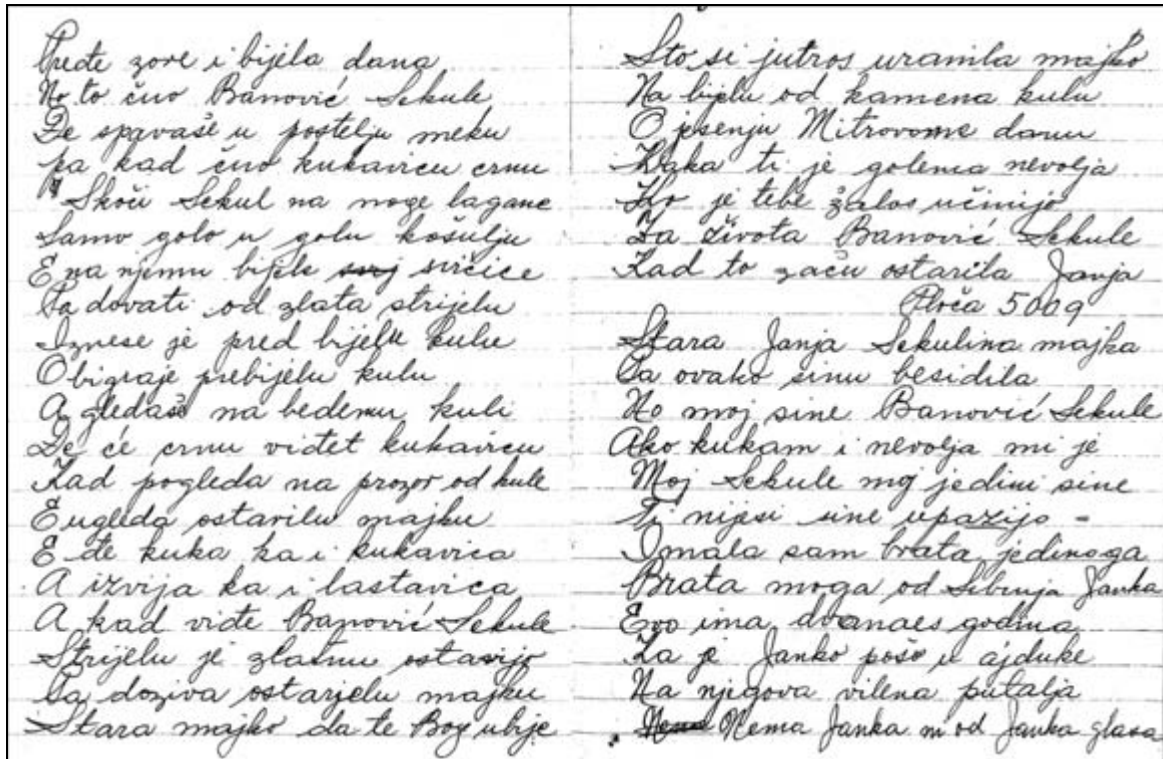 Pređe zore i bijela dana
No to čuo Banović Sekule
Đe spavaše u postelju meku
pa kad čuo kukavicu crnu
Skoči Sekul na noge lagane
Samo golo u golu košulju
E na njemu bijele svičice
Pa dovati od zlata strijelu
Iznese je pred bijelu kulu
Obigraje prebijelu kulu
A gledaše na bedemu kuli
Đe će crnu viđet kukavicu
Kad pogleda na prozor od kule
E ugleda ostarilu majku
E đe kuka ka i kukavica
A izvija ka i lastavica
A kad viđe Banović Sekule
Strijelu je zlatnu ostavijo
Pa doziva ostarjelu majku
Stara majko da te Bog ubije
Što si jutros uranila majko
Na bijelu od kamena kulu
O jesenju Mitrovome danu
Kaka ti je golema nevolja
Ko je tebe žalos učinijo
Za života Banović Sekule
Kad to začu ostarila Janja
Ploča 5009
Stara Janja Sekulina majka
Pa ovako sinu besidila
No moj sine Banović Sekule
Ako kukam i nevolja mi je
Moj Sekule moj jedini sine
Ti nijesi sine upazijo -
Imala sam brata jedinoga
Brata moga od Sibinja Janka
Evo ima dvanaes godina
Ka je Janko pošo u ajduke
Na njigova vilena putalja
Nema Janka ni od Janka glasa